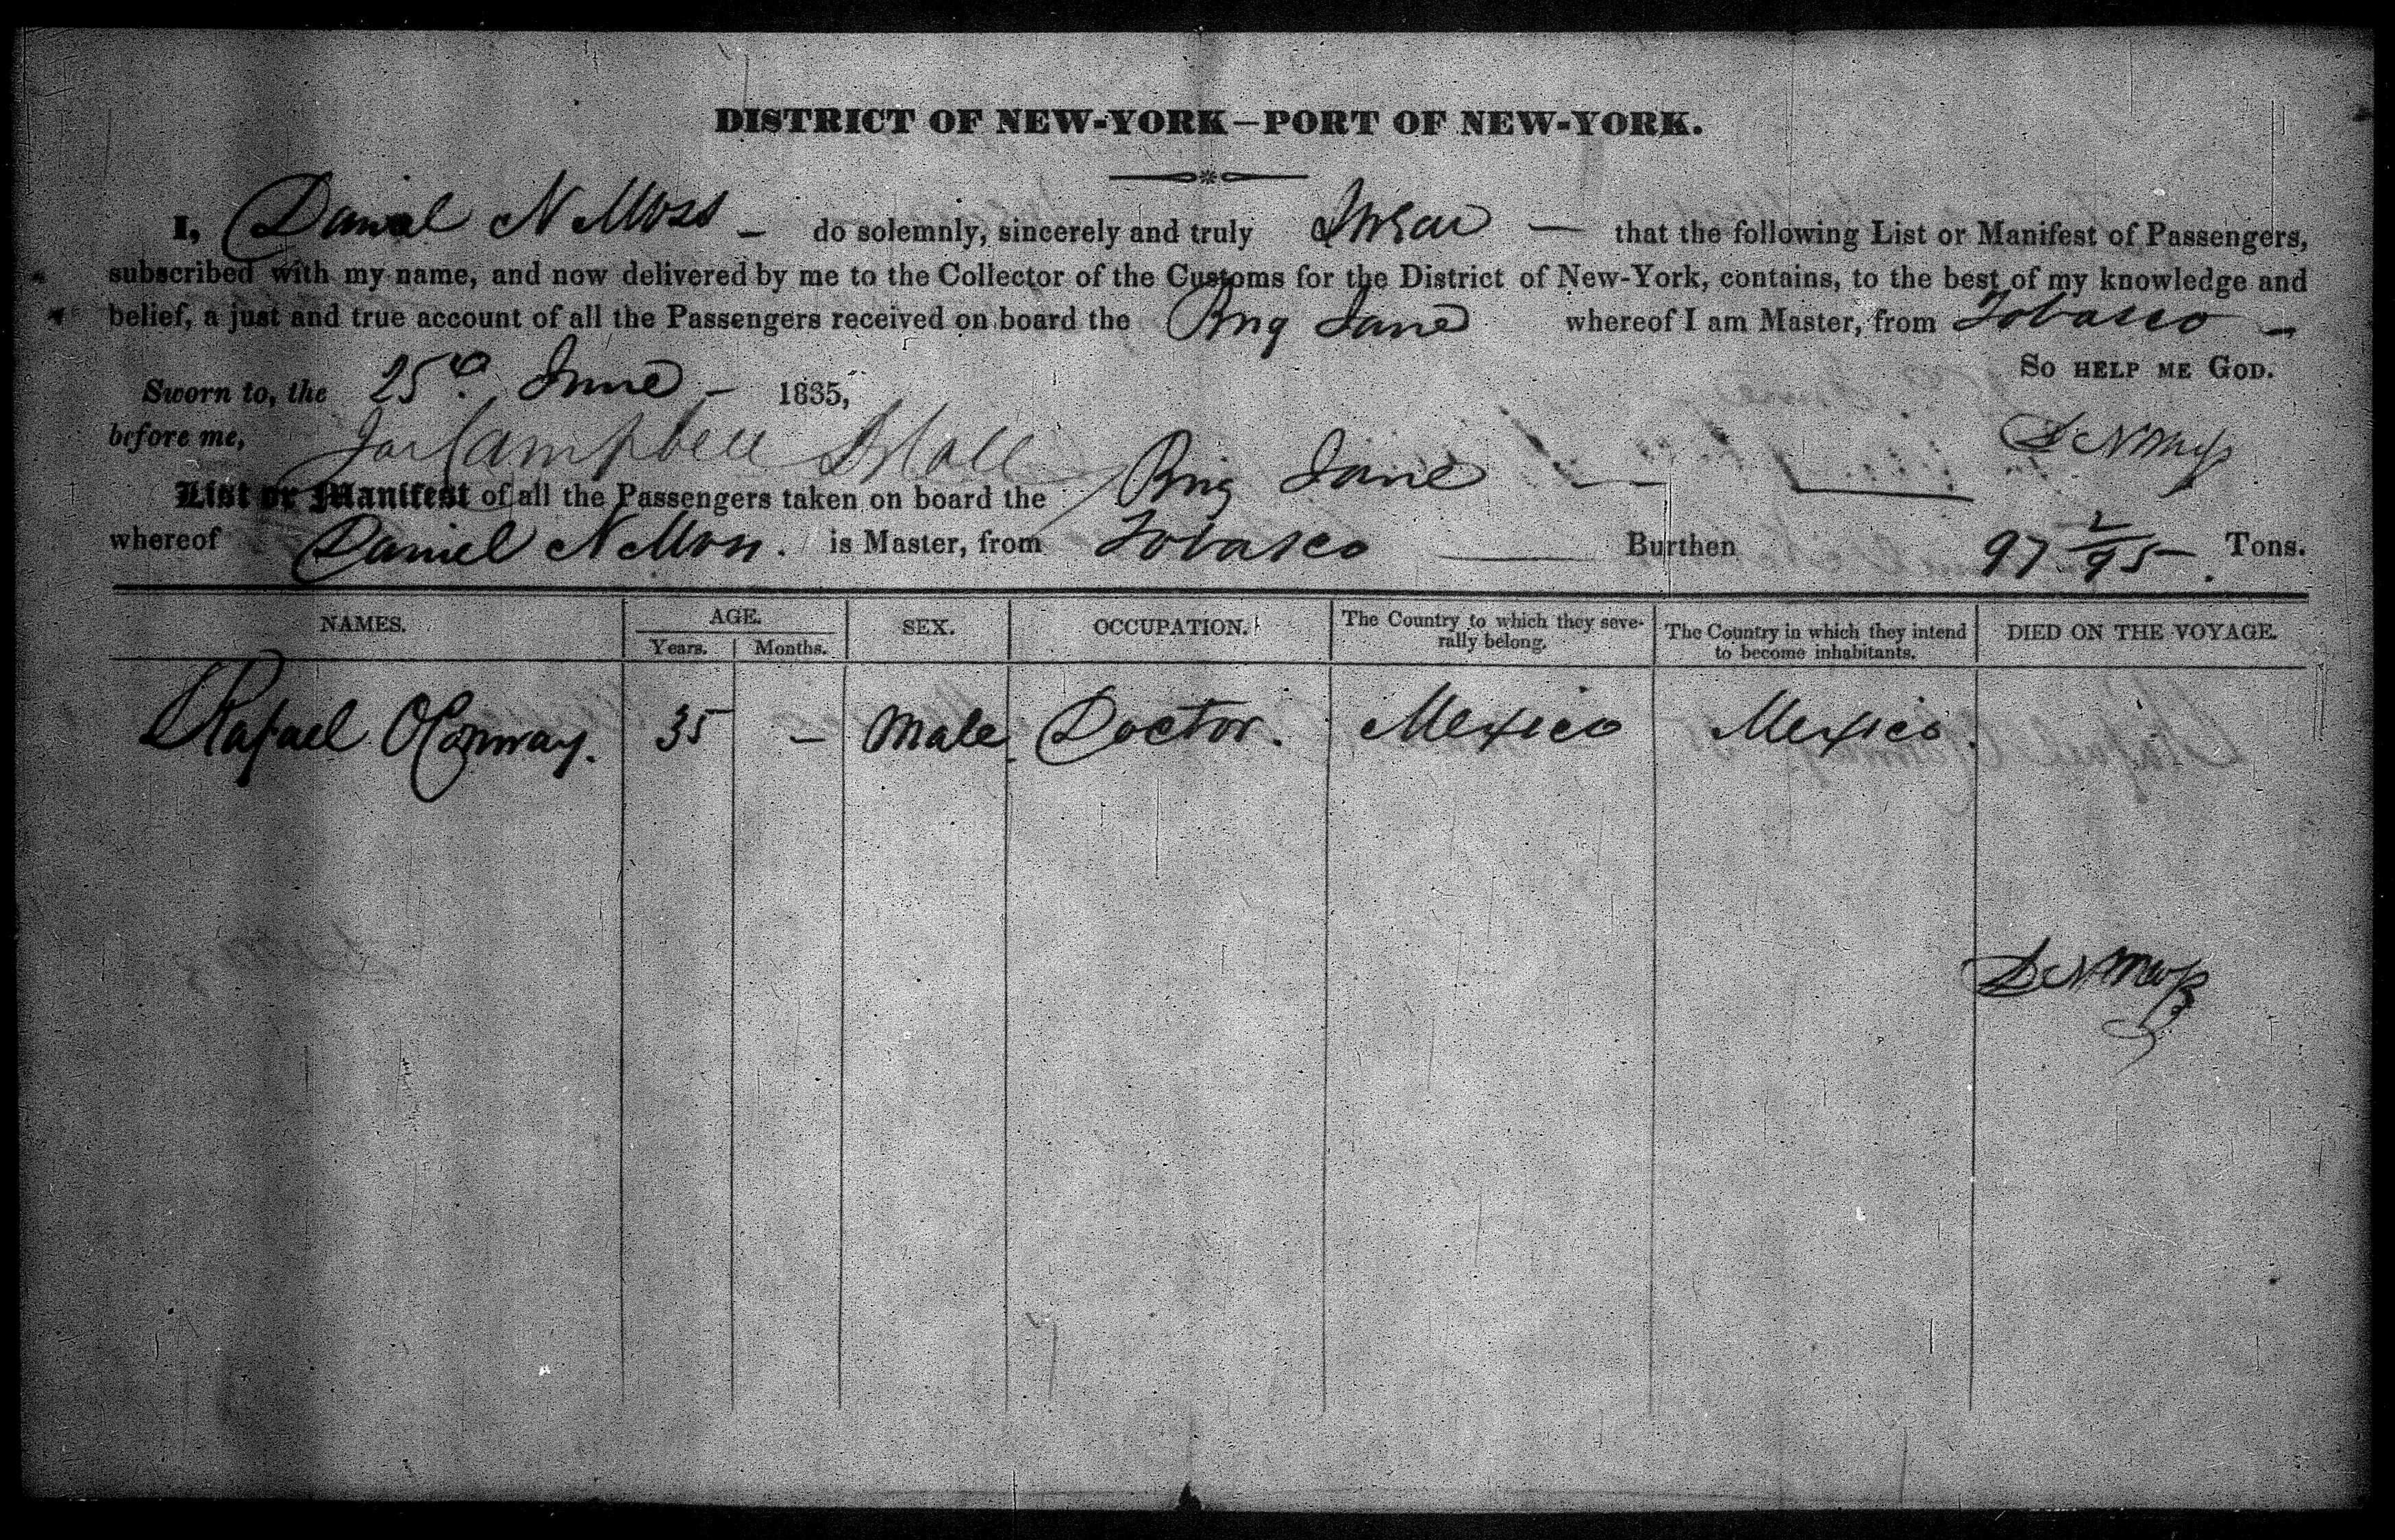 DISTRICT OF NEW-YORK—PORT OF NEW-YORK.
I, Daniel N Moss – do solemnly, sincerely and truly Swear — that the following List or Manifest of Passengers,
subscribed with my name, and now delivered by me to the Collector of the Customs for the District of New-York, contains, to the best of my knowledge and
belief, a just and true account of all the Passengers received on board the Brig Jane whereof I am Master, from Tobasco —
So HELP ME GOD.
Sworn to, the 25th June – 1835,
before me, Campbell D N Moss
List or Manifest of all the Passengers taken on board the Brig Jane —
whereof Daniel N Moss. is Master, from Tobasco — Burthen 97 2/95 Tons.
NAMES. AGE. SEX. OCCUPATION. The Country to which they seve-rally belong. The Country in which they intend to become inhabitants. DIED ON THE VOYAGE.
Years. Months.
Rafael OConway. 35 – Male Doctor. Mexico Mexico.
D N Moss